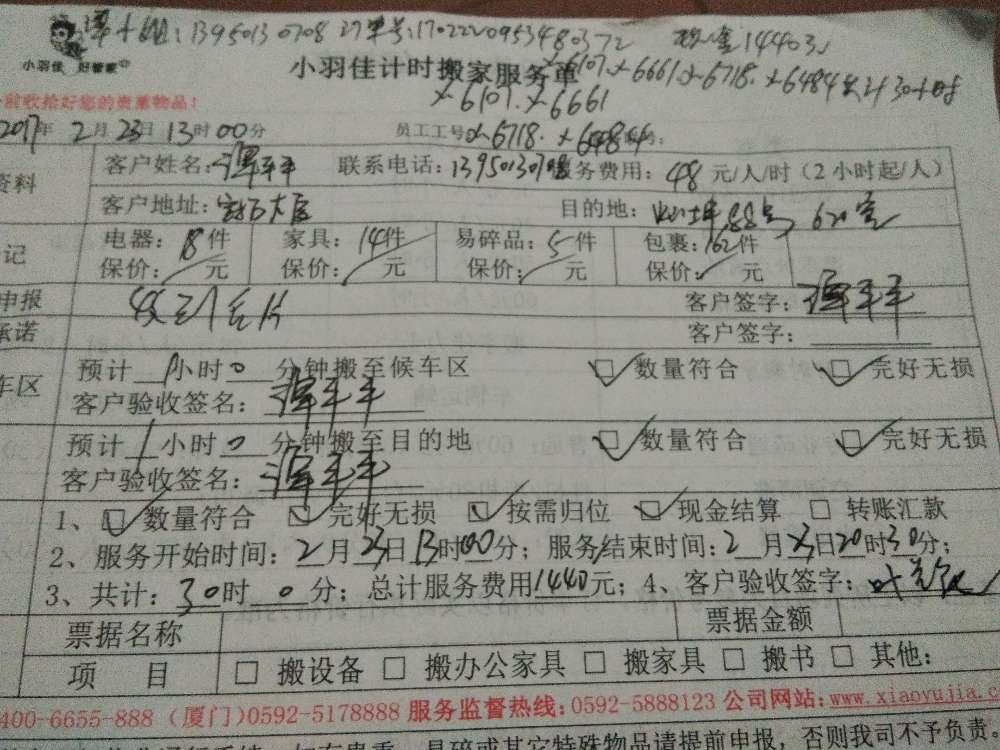 小姐:13950130708 订单号:1702220953480372 现金1440元
小羽佳 好管家 小羽佳计时搬家服务单 x-6107. x-6661 x-6718. x-6484 共计30小时
x-6107. x-6661
前收拾好您的贵重物品!
2017年 2月 23日 13时00分 员工工号 x-6718. x-6484
资料 客户姓名: 联系电话:13950130708 服务费用:48元/人/时(2小时起/人)
客户地址: 大厦 目的地: 88号 620室
记 电器:18件 家具:14件 易碎品:5件 包裹:162件
保价: 元 保价: 元 保价: 元 保价: 元
申报 客户签字:
承诺 客户签字:
车区 预计 1小时0分钟搬至候车区 数量符合 完好无损
客户验收签名:
预计1小时0分钟搬至目的地 数量符合 完好无损
客户验收签名:
1、 数量符合 完好无损 按需归位 现金结算 转账汇款
2、服务开始时间:2月23日13时00分;服务结束时间:2月23日20时30分;
3、共计:30时0分;总计服务费用1440元;4、客户验收签字:
票据名称 票据金额
项 目 搬设备 搬办公家具 搬家具 搬书 其他:
400-6655-888 (厦门)0592-5178888 服务监督热线:0592-5888123 公司网站:www.xiaoyujia.c
易碎或其它特殊物品请提前申报,否则我司不予负责。